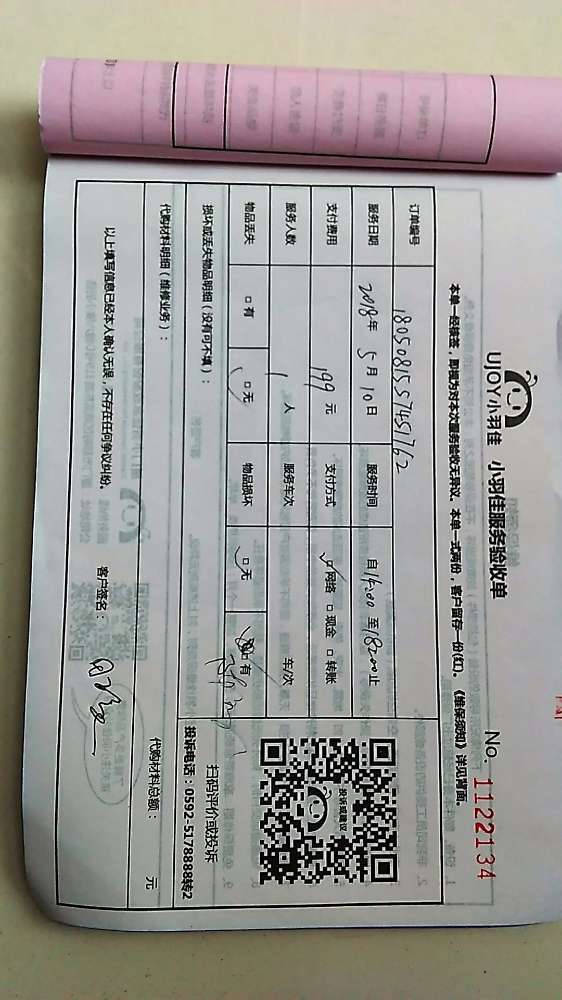 UJOY小羽佳 小羽佳服务验收单
No 1122134
本单一经核签，即视为对本次服务验收无异议。本单一式两份，客户留存一份(红)。《维保须知》详见背面。
订单编号 1805081557451762
服务日期 2018年5月10日 服务时间 自14:00至18:00止
支付费用 199元 支付方式 网络 现金 转账
服务人数 1人 服务车次 车/次
物品丢失 有 无 物品损坏 无 有
损坏或丢失物品明细（没有可不填）：
代购材料明细（维修业务）： 代购材料总额： 元
以上填写信息已经本人确认无误，不存在任何争议纠纷。 客户签名：
投诉或建议
扫码评价或投诉
投诉电话：0592-5178888转2